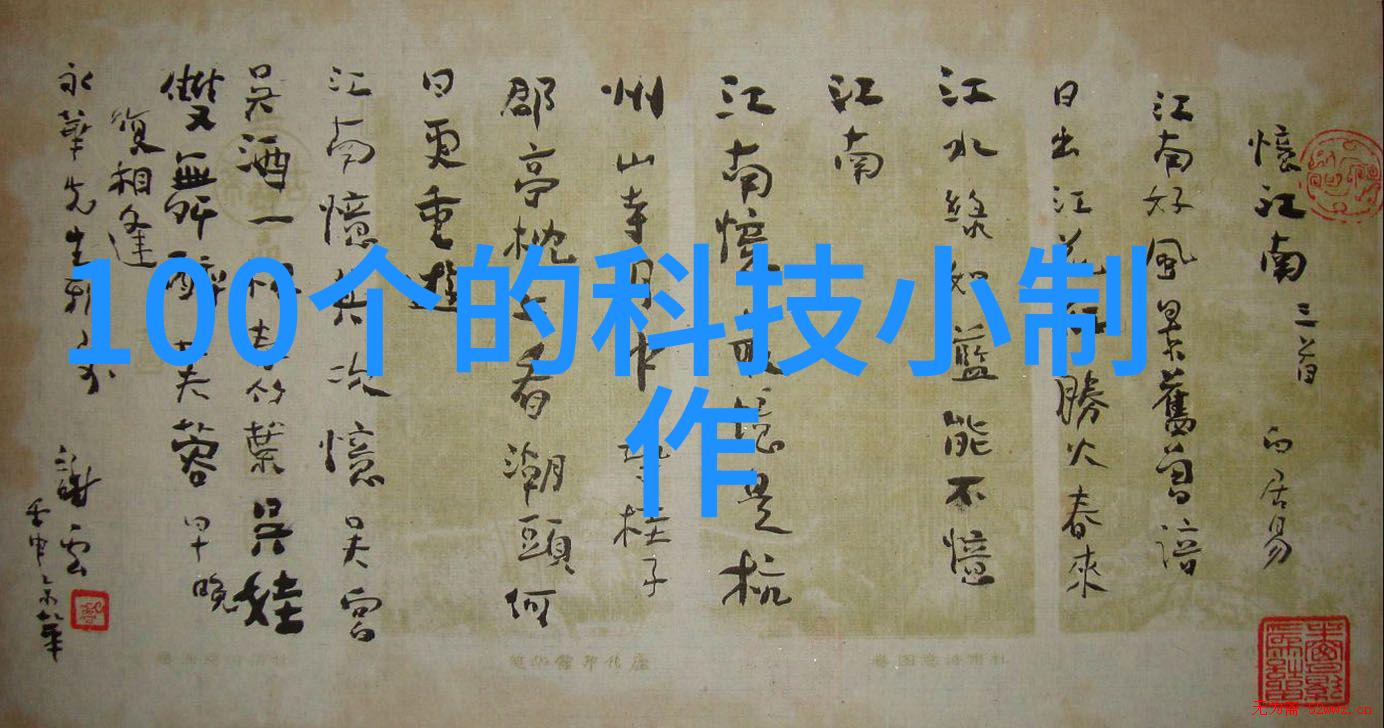 100个的科技小制作
憶江南 三首 白居易
江南好風景舊曾諳
日出江花紅勝火春來
江水綠如藍能不憶
江南
江南憶最憶是杭
州山寺月中尋桂子
郡亭枕上看潮頭何
日更重遊
江南憶其次憶吳宮
吳酒一杯春竹葉吳娃
雙舞醉芙蓉早晚
復相逢
永華先生
謝雲